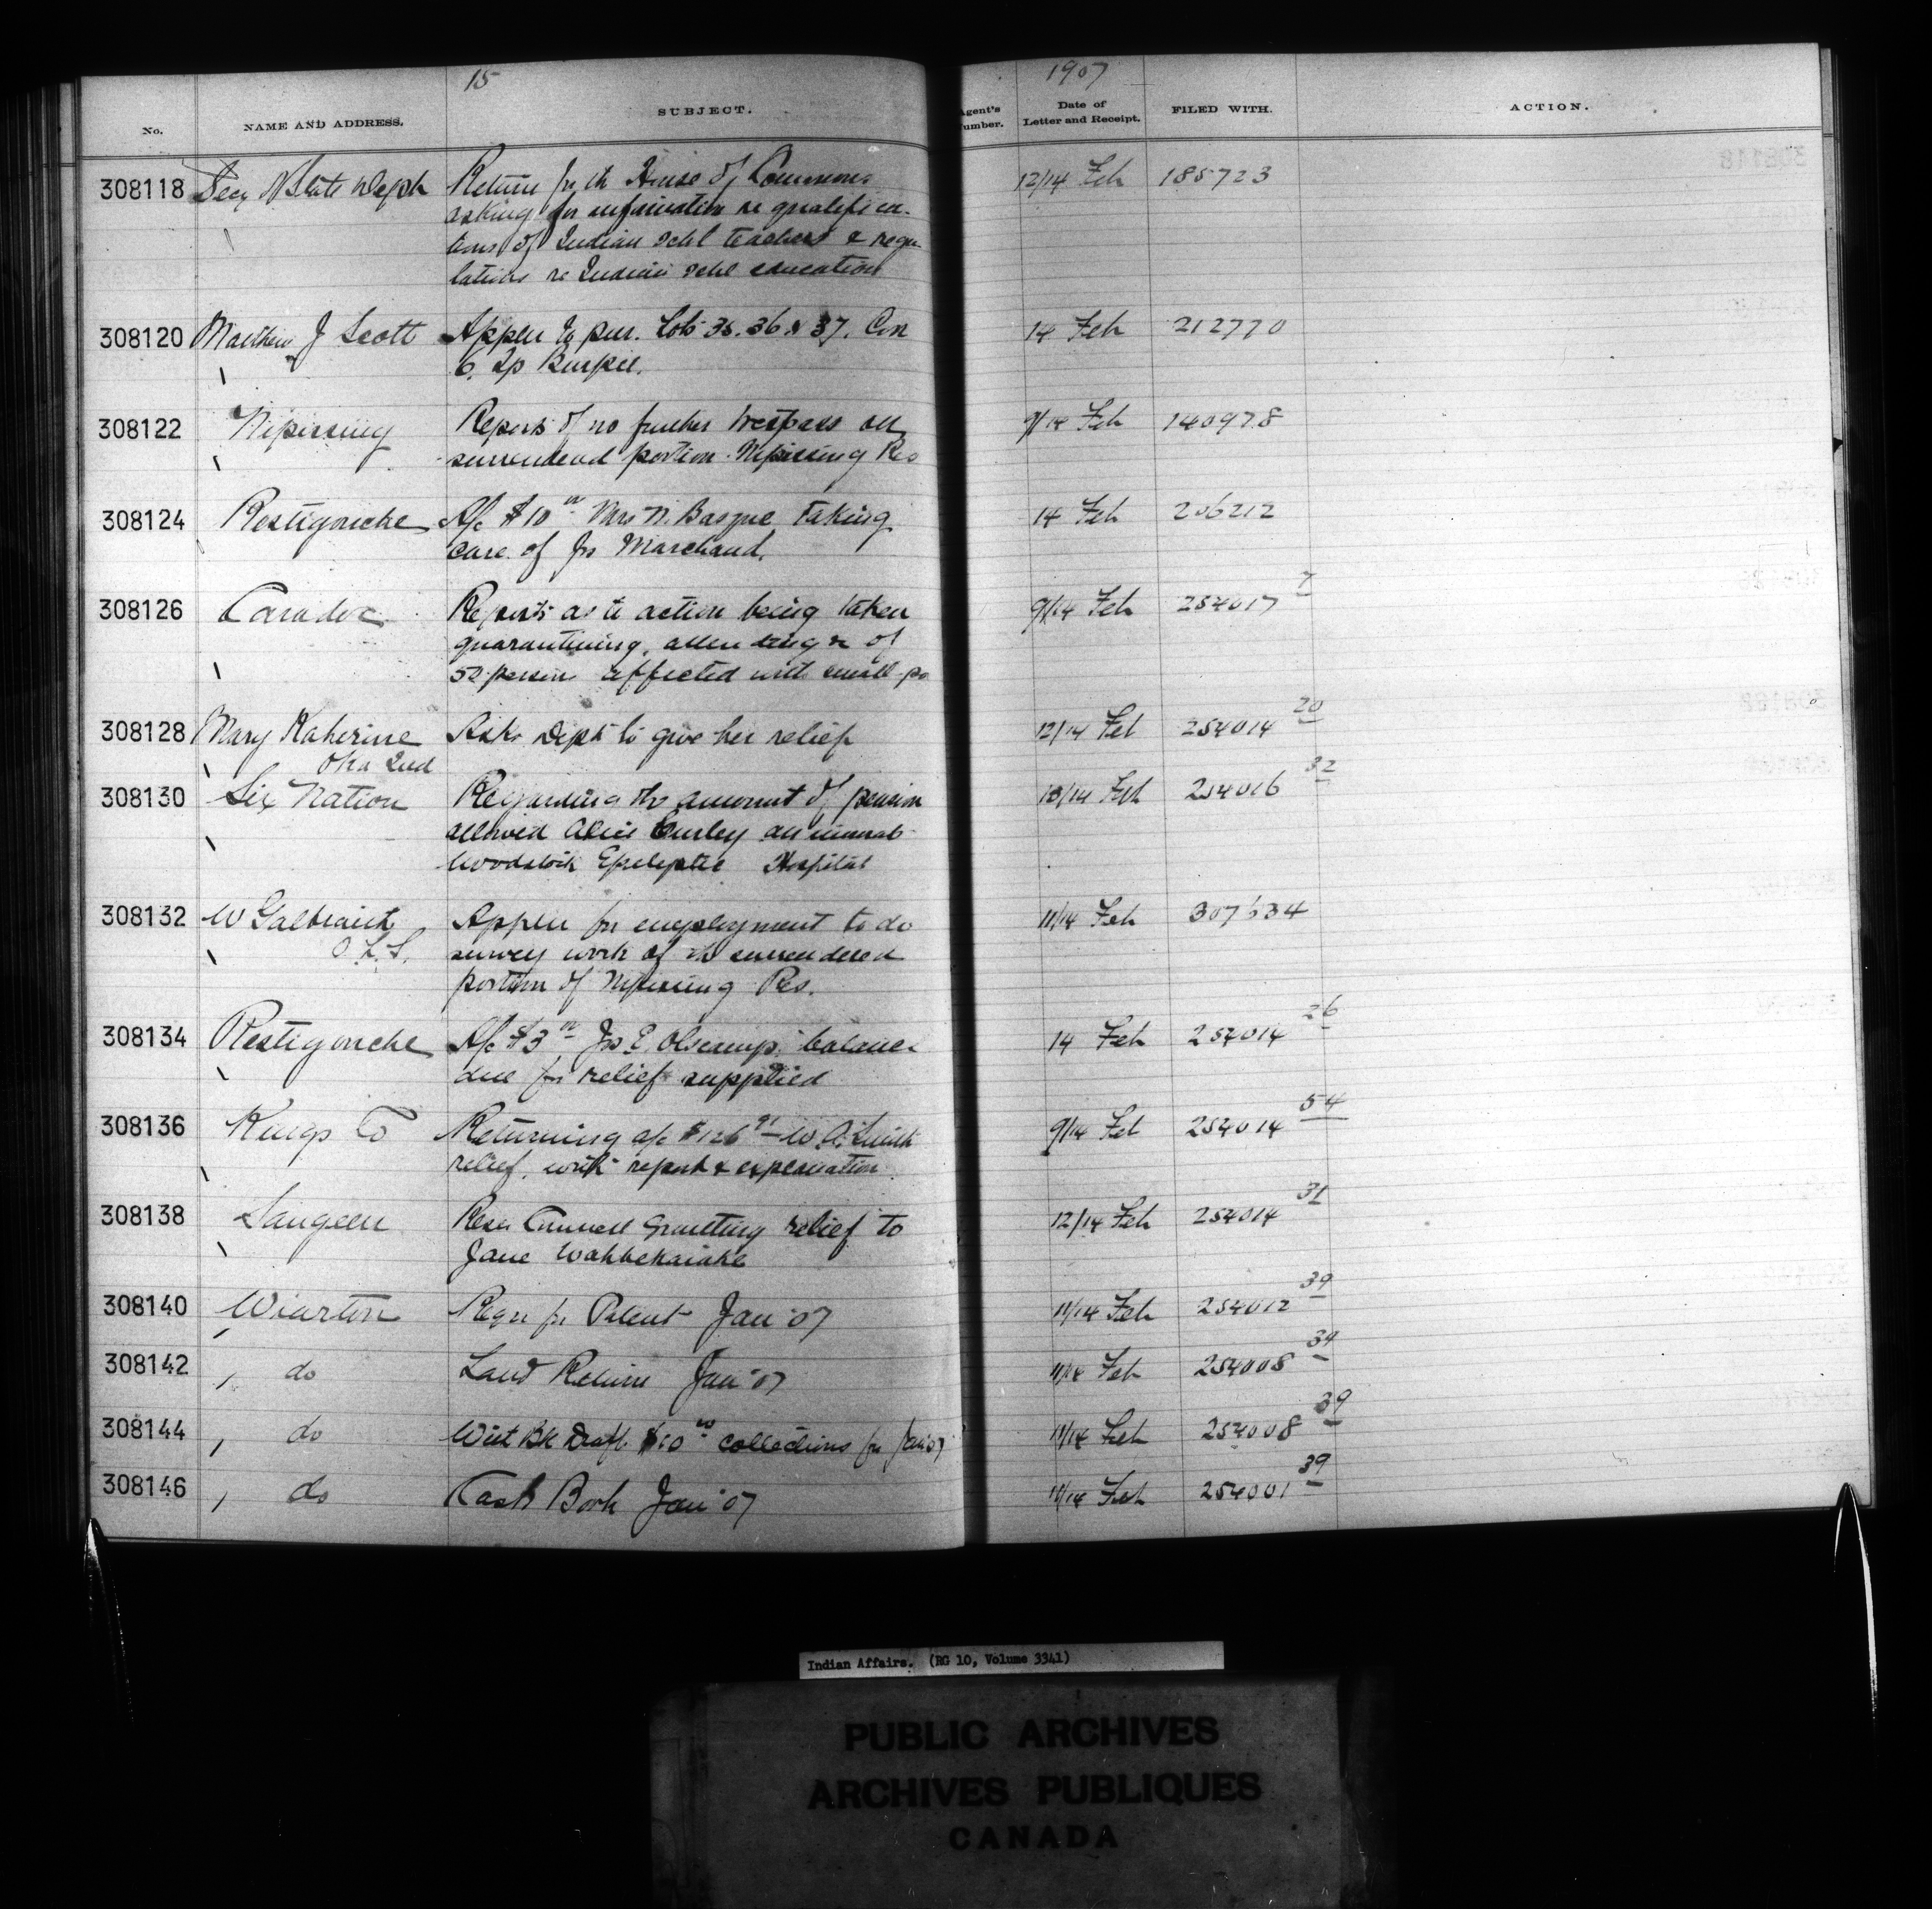 15
1907
No.
NAME AND ADDRESS.
SUBJECT.
Agent's Number.
Date of Letter and Receipt.
FILED WITH.
ACTION.
308118 Secy of State Dept Return for the House of Commons 12/14 Feb 185723
asking for information re qualifica-
tions of Indian schl teachers & regu-
lations re Indian schl education
308120 Matthew J Scott Appln to pur. Lots 35. 36 & 37. Con 14 Feb 212770
6. Tp Burpee.
308122 Nipissing Reports of no further trespass on 9/14 Feb 140978
surrendered portion Nipissing Res
308124 Restigouche A/c $10 Mrs N. Basque taking 14 Feb 206212
care of Jos Marchand.
308126 Caradoc Reports as to action being taken 9/14 Feb 254017 7
quarantining, attending &c of
52 persons affected with small-po
308128 Mary Katherine Asks Dept to give her relief 12/14 Feb 254014 20
Oka Ind
308130 Six Nation Regarding the amount of pension 13/14 Feb 254016 32
allowed Alice Curley an inmate
Woodstock Epileptic Hospital
308132 W Galbraith Appln for employment to do 11/14 Feb 307634
O.L.S. survey work of the surrendered
portion of Nipissing Res.
308134 Restigouche A/c $3 Jos E. Olscamp balance 14 Feb 254014 26
due for relief supplied
308136 Kings Co Returning a/c $126 91 W. A. Smith 9/14 Feb 254014 54
relief, with report & explanation
308138 Saugeen Resn Council granting relief to 12/14 Feb 254014 31
Jane Wahbekaiahe
308140 Wiarton Requ for Patent Jan '07 11/14 Feb 254012 39
308142 do Land Return Jan '07 11/14 Feb 254008 39
308144 do With Bk Draft collections for Jan 07 11/14 Feb 254008 39
308146 do Cash Book Jan '07 11/14 Feb 254001 39
Indian Affairs. (RG 10, Volume 3341)
PUBLIC ARCHIVES
ARCHIVES PUBLIQUES
CANADA